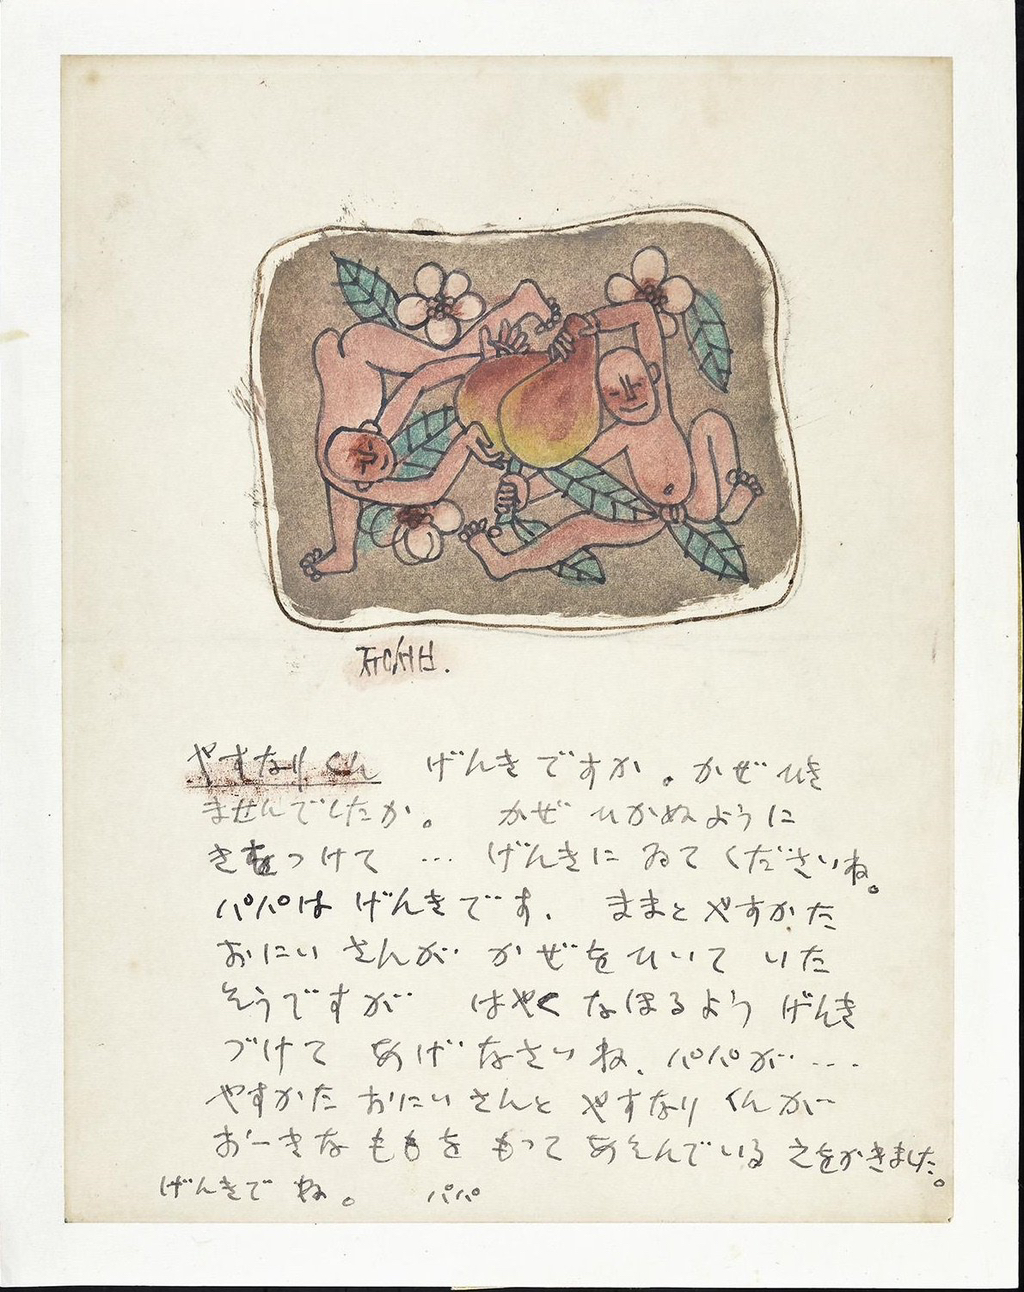 ㅈㅜㅇㅅㅓㅂ.
やすなりくん げんきですか。かぜひき
ませんでしたか。 かぜ ひかぬように
きをつけて … げんきに ゐて くださいね。
パパは げんきです. ままと やすかた
おにいさんが かぜを ひいて いた
そうですが はやく なほるよう げんき
づけて あげなさいね. パパが…
やすかた おにいさんと やすなりくんが
おーきな ももを もって あそんでいる えをかきました。
げんきでね。 パパ